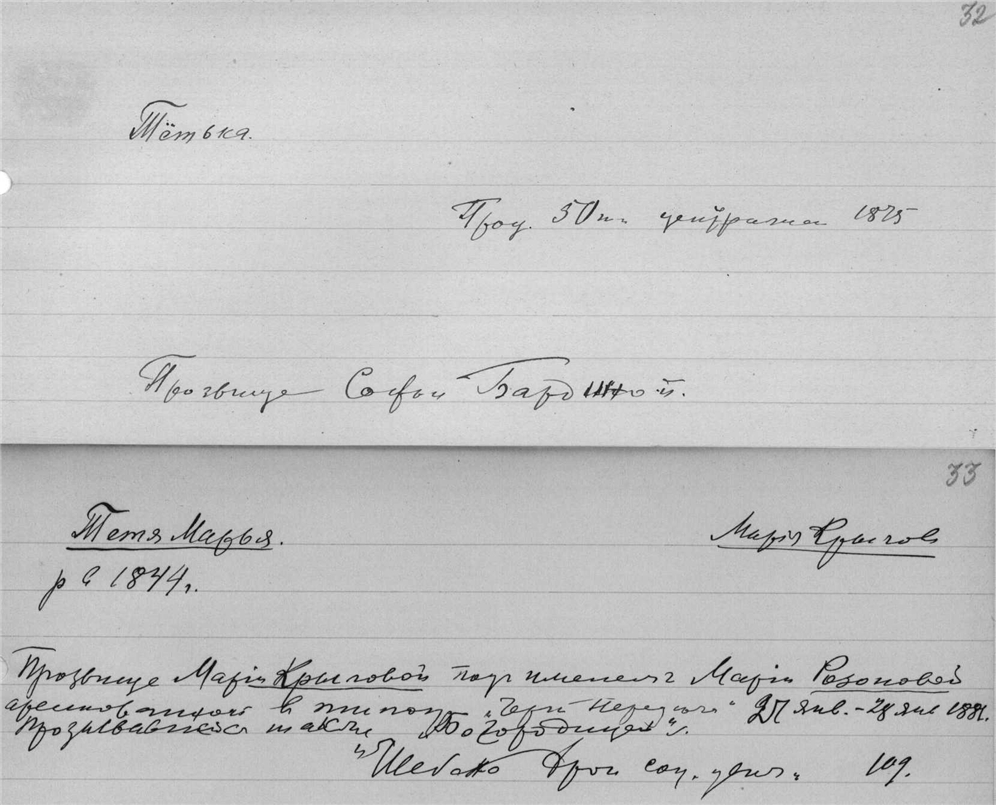 32
Тётька.
Прод. 50ти централка 1875
Прозвище Софьи Бардиной.
33
Тетя Марья.
Марiя Крылов
р в 1844 г.
Прозвище Марiи Крыловой под именем Марiи Розоновой
арестованной в типогр „Черн Передела" 27 янв. - 28 янв 1881.
Прозывавшейся также „Богородицей".
„Шебеко Хрон соц. движ" 109.